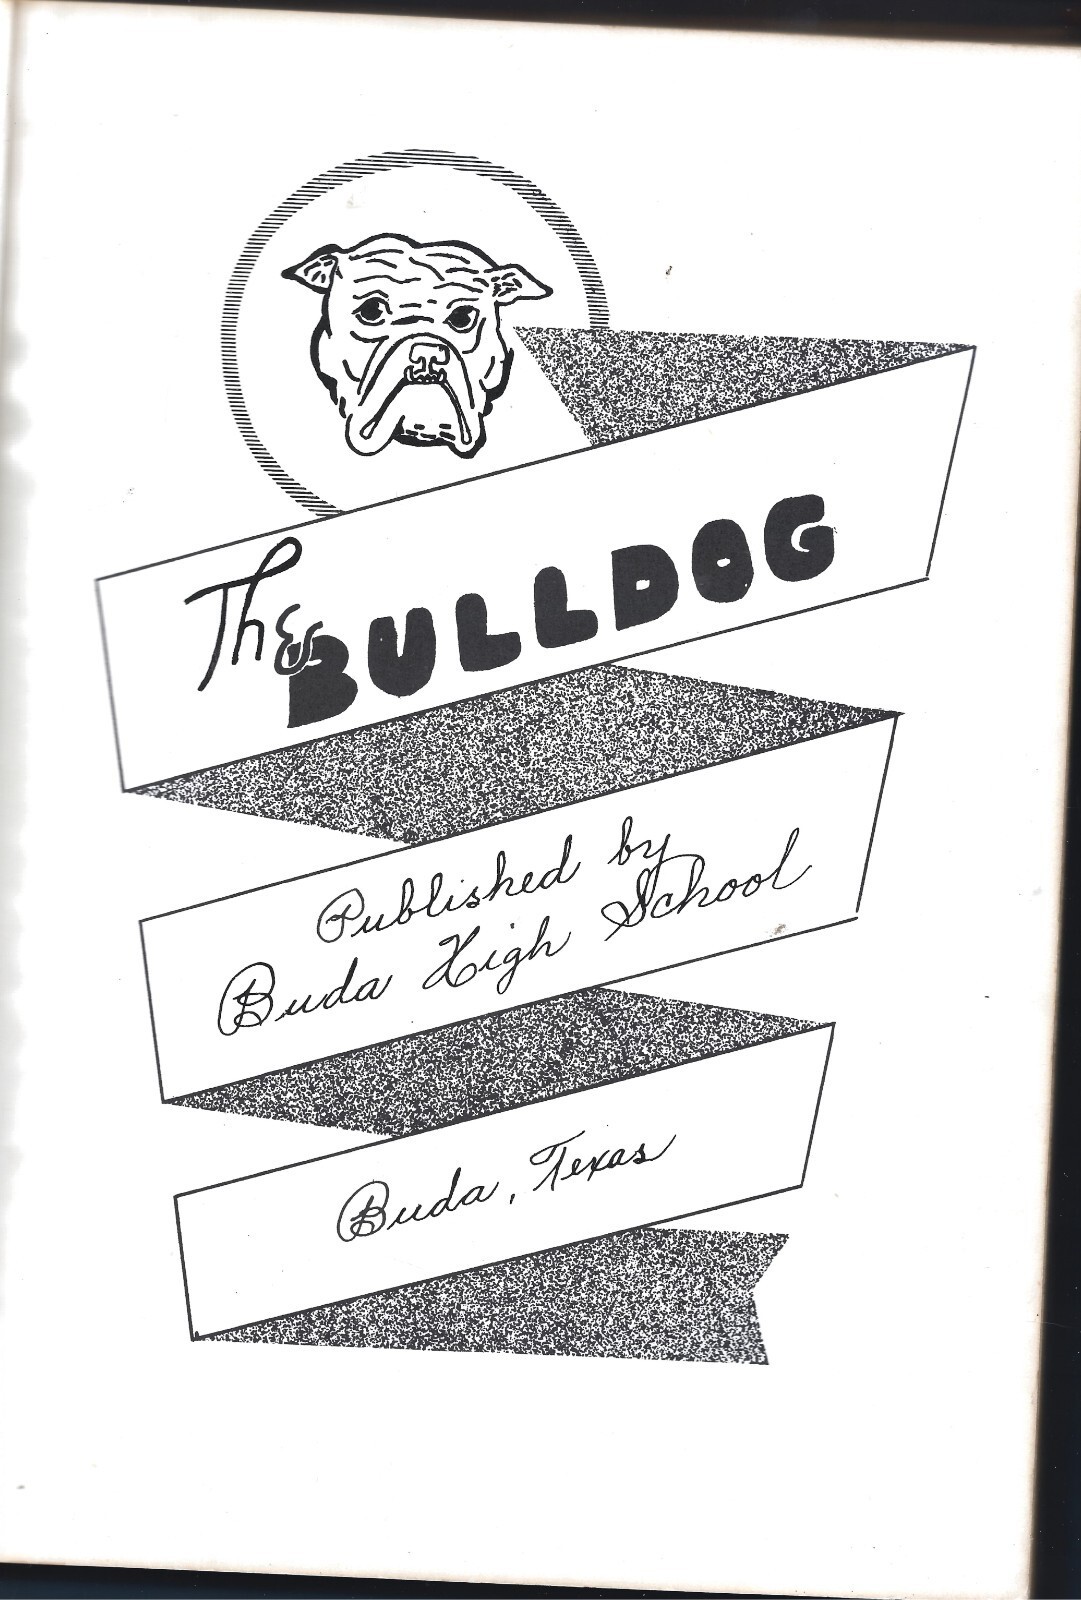 The BULLDOG
Published by
Buda High School
Buda, Texas